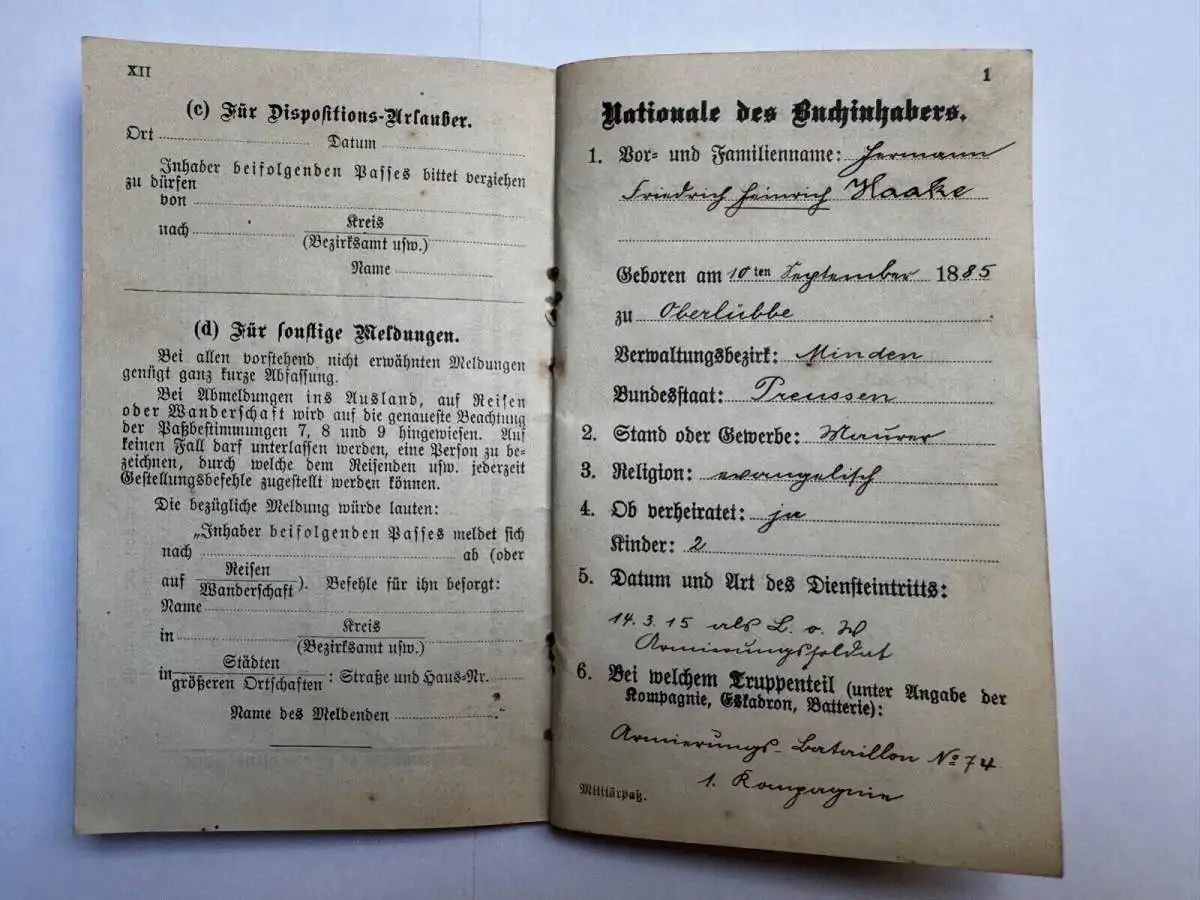 XII
(c) Für Dispositions-Urlauber.
Ort Datum
Inhaber beifolgenden Passes bittet verziehen
zu dürfen
von
nach Kreis
(Bezirksamt usw.)
Name
(d) Für sonstige Meldungen.
Bei allen vorstehend nicht erwähnten Meldungen
genügt ganz kurze Abfassung.
Bei Abmeldungen ins Ausland, auf Reisen
oder Wanderschaft wird auf die genaueste Beachtung
der Paßbestimmungen 7, 8 und 9 hingewiesen. Auf
keinen Fall darf unterlassen werden, eine Person zu be-
zeichnen, durch welche dem Reisenden usw. jederzeit
Gestellungsbefehle zugestellt werden können.
Die bezügliche Meldung würde lauten:
„Inhaber beifolgenden Passes meldet sich
nach ab (oder
auf Reisen
Wanderschaft). Befehle für ihn besorgt:
Name
in Kreis
(Bezirksamt usw.)
in Städten
größeren Ortschaften: Straße und Haus-Nr.
Name des Meldenden "
1
Nationale des Buchinhabers.
1. Vor- und Familienname: Hermann
Friedrich Heinrich Haake
Geboren am 10ten September 1885
zu Oberlübbe
Verwaltungsbezirk: Minden
Bundesstaat: Preussen
2. Stand oder Gewerbe: Maurer
3. Religion: evangelisch
4. Ob verheiratet: ja
Kinder: 2
5. Datum und Art des Diensteintritts:
14. 3. 15 als L. o. W
Armierungssoldat
6. Bei welchem Truppenteil (unter Angabe der
Kompagnie, Eskadron, Batterie):
Armierungs-Bataillon No 74
1. Kompagnie
Militärpaß.